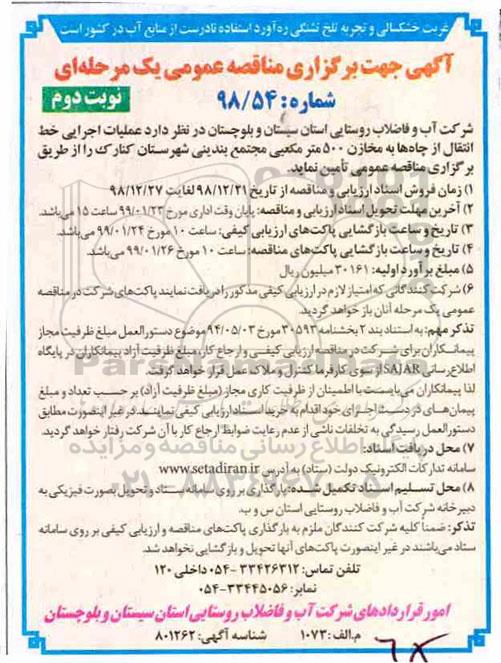 غربت خشکسالی و تجربه تلخ تشنگی ره‌آورد استفاده نادرست از منابع آب در کشور است
آگهی جهت برگزاری مناقصه عمومی یک مرحله‌ای
شماره: ۹۸/۵۴
نوبت دوم
شرکت آب و فاضلاب روستایی استان سیستان و بلوچستان در نظر دارد عملیات اجرایی خط
انتقال از چاه‌ها به مخازن ۵۰۰ متر مکعبی مجتمع بندینی شهرستان کنارک را از طریق
برگزاری مناقصه عمومی تأمین نماید.
۱) زمان فروش اسناد ارزیابی و مناقصه از تاریخ ۹۸/۱۲/۲۱ لغایت ۹۸/۱۲/۲۷
۲) آخرین مهلت تحویل اسناد ارزیابی و مناقصه: پایان وقت اداری مورخ ۹۹/۰۱/۲۳ ساعت ۱۵ می‌باشد.
۳) تاریخ و ساعت بازگشایی پاکت‌های ارزیابی کیفی: ساعت ۱۰ مورخ ۹۹/۰۱/۲۴ می‌باشد.
۴) تاریخ و ساعت بازگشایی پاکت‌های مناقصه: ساعت ۱۰ مورخ ۹۹/۰۱/۲۶ می‌باشد.
۵) مبلغ برآورد اولیه: ۳۰۱۶۱ میلیون ریال
۶) شرکت کنندگانی که امتیاز لازم در ارزیابی کیفی مذکور را دریافت نمایند پاکت‌های شرکت در مناقصه
عمومی یک مرحله آنان باز خواهد گردید.
تذکر مهم: به استناد بند ۲ بخشنامه ۳۰۵۹۳ مورخ ۹۴/۰۵/۰۳ موضوع دستورالعمل مبلغ ظرفیت مجاز
پیمانکاران برای شرکت در مناقصه ارزیابی کیفی و ارجاع کار، مبلغ ظرفیت آزاد پیمانکاران در پایگاه
اطلاع رسانی SAJAR از سوی کارفرما کنترل و ملاک عمل قرار خواهد گرفت.
لذا پیمانکاران می‌بایست با اطمینان از ظرفیت کاری مجاز (مبلغ ظرفیت آزاد) بر حسب تعداد و مبلغ
پیمان‌های در دست اجرای خود اقدام به خرید اسناد ارزیابی کیفی نمایند. در غیر اینصورت مطابق
دستورالعمل رسیدگی به تخلفات ناشی از عدم رعایت ضوابط ارجاع کار با آن شرکت رفتار خواهد گردید.
۷) محل دریافت اسناد:
سامانه تدارکات الکترونیک دولت (ستاد) به آدرس www.setadiran.ir
۸) محل تسلیم اسناد تکمیل شده: بارگذاری بر روی سامانه ستاد و تحویل بصورت فیزیکی به
دبیرخانه شرکت آب و فاضلاب روستایی استان س و ب.
تذکر: ضمناً کلیه شرکت کنندگان ملزم به بارگذاری پاکت‌های مناقصه و ارزیابی کیفی بر روی سامانه
ستاد می‌باشند در غیر اینصورت پاکت‌های آنها تحویل و بازگشایی نخواهد شد.
تلفن تماس: ۳۳۴۲۶۳۱۲-۰۵۴ داخلی ۱۲۰
نمابر: ۳۳۴۴۵۰۵۶-۰۵۴
امور قراردادهای شرکت آب و فاضلاب روستایی استان سیستان و بلوچستان
شناسه آگهی: ۸۰۱۲۶۲
م.الف: ۱۰۷۳